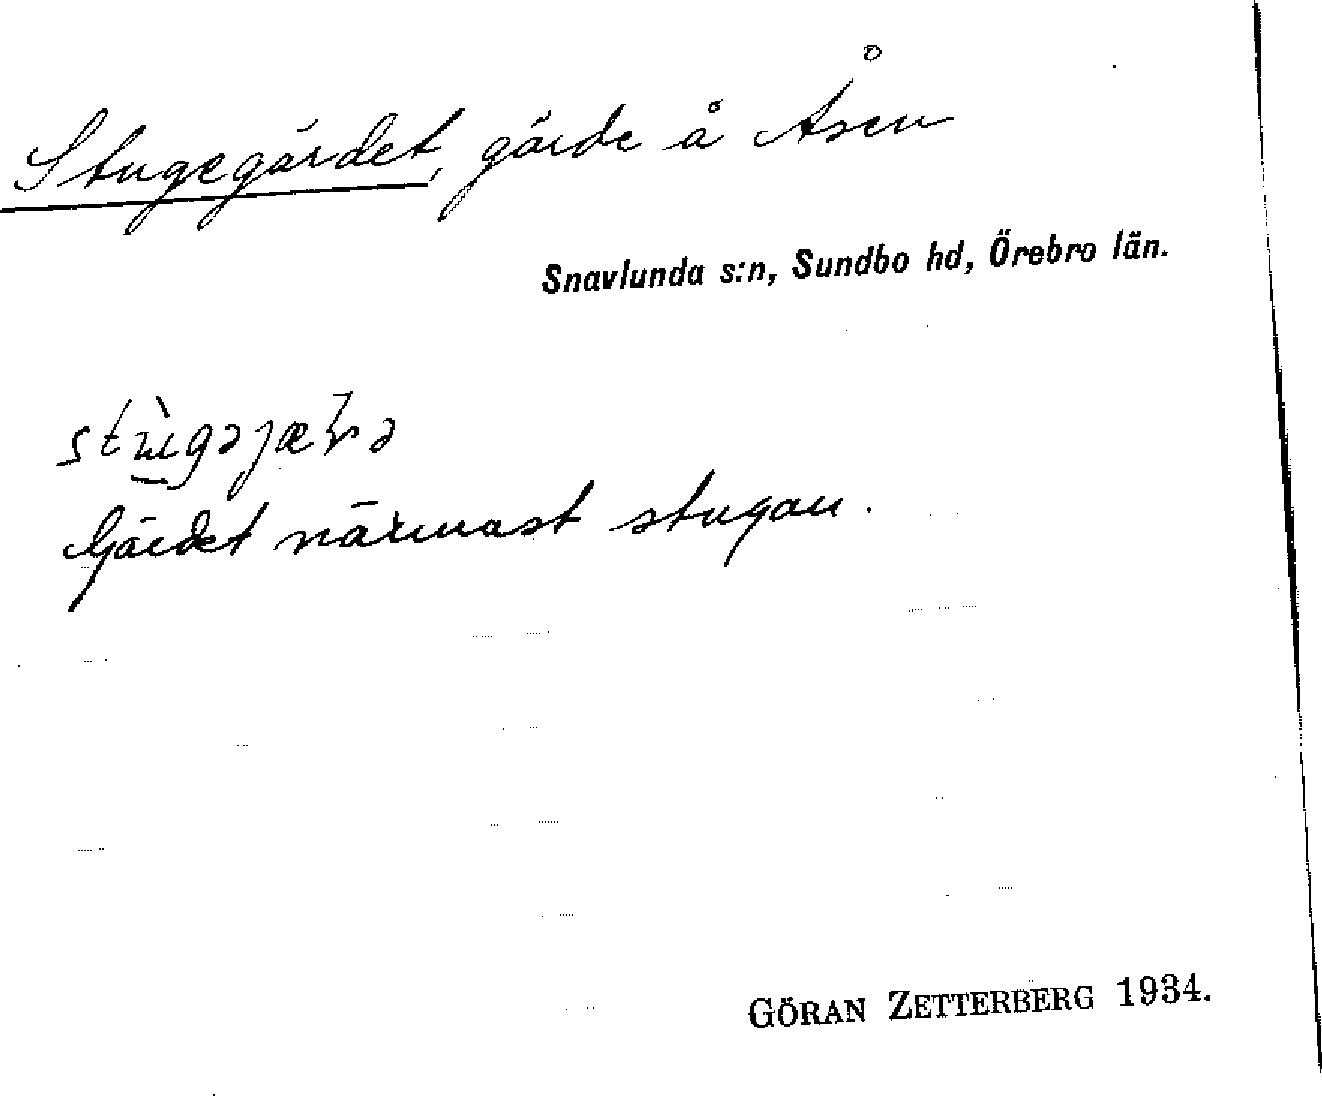 Stugegärdet, gärde å Åsen
Snavlunda s:n, Sundbo hd, Örebro län.
Gärdet närmast stugan.
GÖRAN ZETTERBERG 1934.